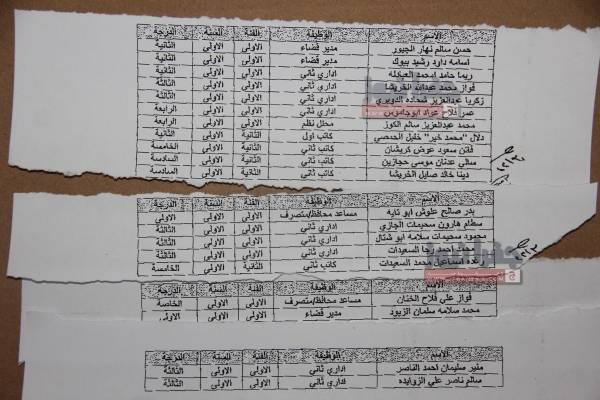 الاسم الوظيفة الفئة السنة الدرجة
حسن سالم نهار الجبور مدير قضاء الاولى الاولى الثانية
اسامه داود رشيد بيوك مدير قضاء الاولى الاولى الثانية
ريما حامد امحمد العبادله اداري ثاني الاولى الاولى الثانية
فواز محمد عبدالله الخريشا اداري ثاني الاولى الاولى الثالثة
زكريا عبدالعزيز شحاده الدويري اداري ثاني الاولى الاولى الثالثة
عمر فلاح عواد ابوجاموس اداري ثاني الاولى الاولى الرابعة
محمد عبدالعزيز سالم الكوز محلل نظم الاولى الاولى الرابعة
دلال "محمد خير" خليل الحمصي كاتب اول الثانية الاولى الثانية
فاتن سعود عوض كريشان كاتب ثاني الثانية الاولى الخامسة
سالي عدنان موسى حجازين كاتب ثاني الثانية الاولى السادسة
دينا خالد صايل الخريشا كاتب ثاني الثانية الاولى السادسة
الاسم الوظيفة الفئة السنة الدرجة
بدر صالح علوش ابو تايه مساعد محافظ/متصرف الاولى الاولى الاولى
سطام هارون سحيمات الجازي اداري ثاني الاولى الاولى الثالثة
محمود سحيمات سلامه ابو شتال اداري ثاني الاولى الاولى الثالثة
محمد احمد رجا السعيدات اداري ثاني الاولى الاولى الثالثة
رغده اسماعيل محمد السعيدات كاتب ثاني الثانية الاولى الخامسة
الاسم الوظيفة الفئة السنة الدرجة
فواز علي فلاح الخنان مساعد محافظ/متصرف الاولى الاولى الخاصة
محمد سلامه سلمان الزيود مدير قضاء الاولى الاولى الاولى
الاسم الوظيفة الفئة السنة الدرجة
منير سليمان احمد الناصر اداري ثاني الاولى الاولى الثالثة
سالم ناصر علي الزوايده اداري ثاني الاولى الاولى الثالثة